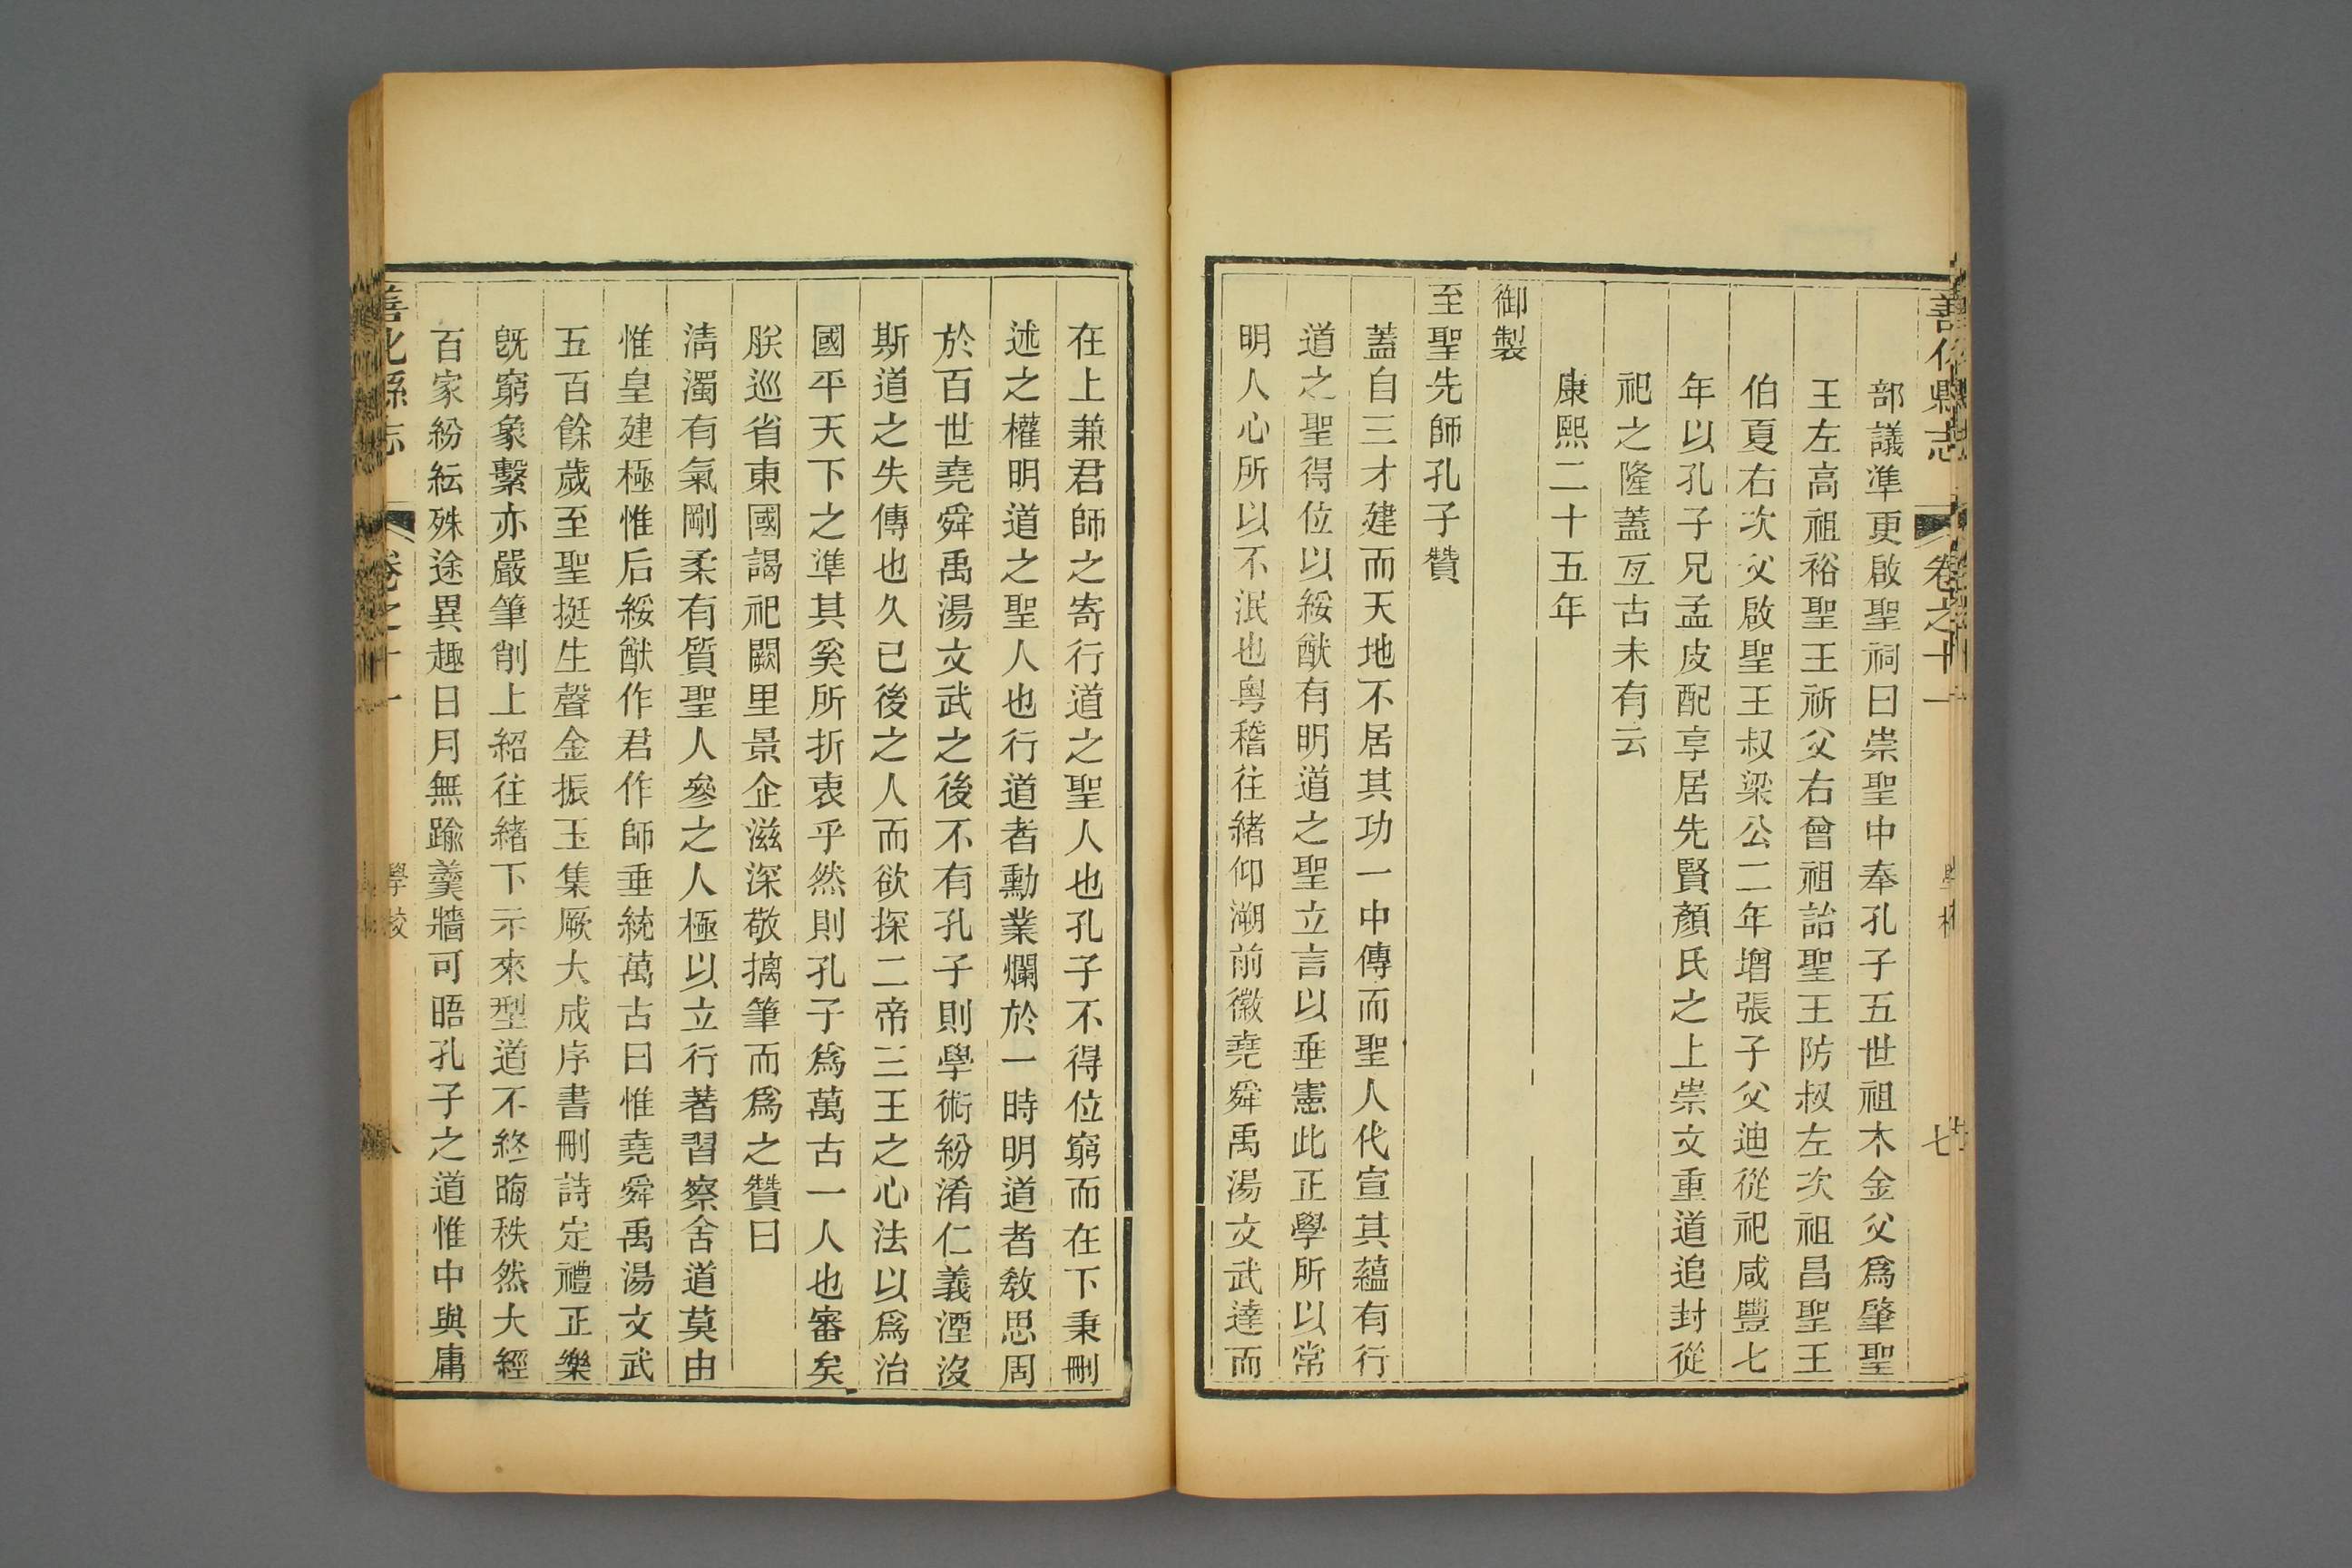 善化縣志 卷之十一 學校 七
部議準更啟聖祠曰崇聖中奉孔子五世祖木金父爲肇聖
王左高祖裕聖王祈父右曾祖詒聖王防叔左次祖昌聖王
伯夏右次父啟聖王叔梁公二年增張子父迪從祀咸豐七
年以孔子兄孟皮配享居先賢顏氏之上崇文重道追封從
祀之隆蓋亙古未有云
康熙二十五年
御製
至聖先師孔子贊
蓋自三才建而天地不居其功一中傳而聖人代宣其蘊有行
道之聖得位以綏猷有明道之聖立言以垂憲此正學所以常
明人心所以不泯也粵稽往緒仰溯前徽堯舜禹湯文武達而
在上兼君師之寄行道之聖人也孔子不得位窮而在下秉刪
述之權明道之聖人也行道者勳業爛於一時明道者敎思周
於百世堯舜禹湯文武之後不有孔子則學術紛淆仁義湮沒
斯道之失傳也久已後之人而欲探二帝三王之心法以爲治
國平天下之準其奚所折衷乎然則孔子爲萬古一人也審矣
朕巡省東國謁祀闕里景企滋深敬摛筆而爲之贊曰
清濁有氣剛柔有質聖人參之人極以立行著習察舍道莫由
惟皇建極惟后綏猷作君作師垂統萬古曰惟堯舜禹湯文武
五百餘歲至聖挺生聲金振玉集厥大成序書刪詩定禮正樂
旣窮象繫亦嚴筆削上紹往緒下示來型道不終晦秩然大經
百家紛紜殊途異趣日月無踰羹牆可晤孔子之道惟中與庸
善化縣志 卷之十一 學校 八